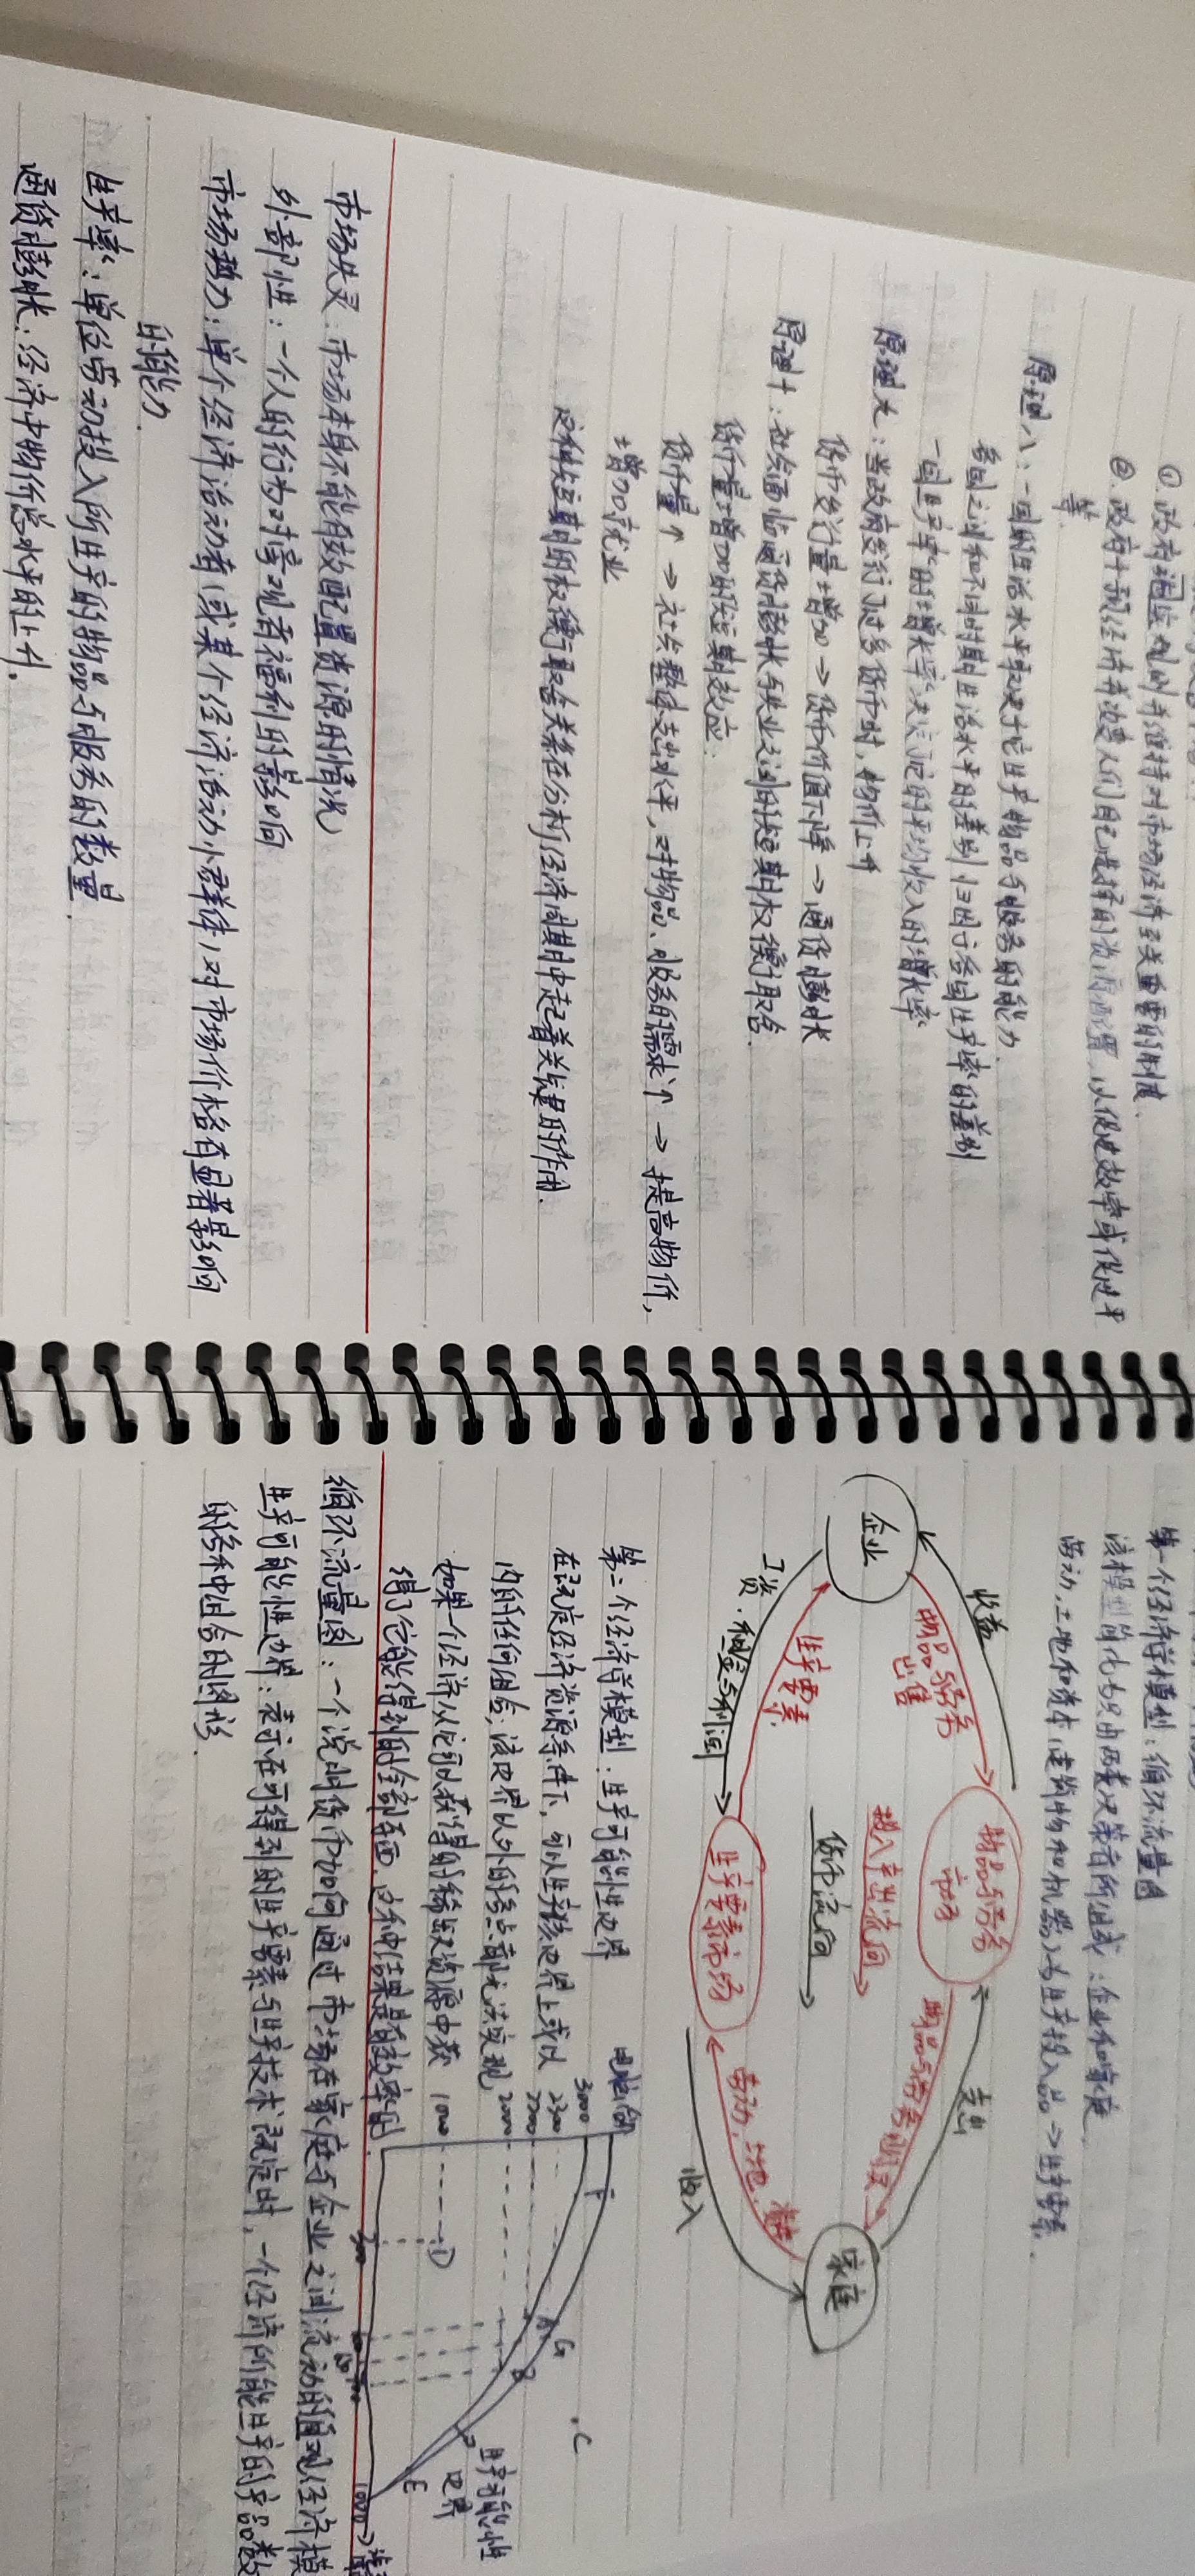 ①.政府强实规则并维持对市场经济至关重要的制度.
②.政府干预经济并改变人们自己选择的资源配置,以促进效率或促进平
等.
原理八:一国的生活水平取决于它生产物品与服务的能力.
各国之间和不同时期生活水平的差别归因于各国生产率的差别
一国生产率的增长率决定了它的平均收入的增长率
原理九:当政府发行了过多货币时,物价上升
货币发行量增加→货币价值下降→通货膨胀
原理十:社会面临通货膨胀与失业之间的短期权衡取舍.
货币量增加的短期效应:
货币量↑→社会整体支出水平,对物品、服务的需求↑→提高物价,
增加就业
这种短期的权衡取舍关系在分析经济周期中起着关键的作用.
市场失灵:市场本身不能有效配置资源的情况
外部性:一个人的行为对旁观者福利的影响
市场势力:单个经济活动者(或某个经济活动小群体)对市场价格有显著影响
的能力.
生产率:单位劳动投入所生产的物品与服务的数量.
通货膨胀:经济中物价总水平的上升.
第一个经济学模型:循环流量图
该模型简化为只由两类决策者所组成:企业和家庭.
劳动.土地和资本(建筑物和机器)为生产投入品→生产要素.
收益
支出
物品与服务
出售
物品与劳务
市场
物品与劳务购买
企业
投入产出流向
货币流向
家庭
生产要素
工资.租金与利润
生产要素市场
劳动.土地.资本
收入
第二个经济学模型:生产可能性边界
在既定经济资源条件下,可以生产该边界上或以
内的任何组合;该边界以外的各点都无法实现
如果一个经济从它可以获得的稀缺资源中获
得了它能得到的全部东西,这种结果是有效率的
电脑(台)
3000
2300
2200
2000
1000
F
A
G
B
C
D
E
生产可能性
边界
300
1000
循环流量图:一个说明货币如何通过市场在家庭与企业之间流动的直观经济模
生产可能性边界:表示在可得到的生产要素与生产技术既定时,一个经济所能生产的产品数
的各种组合的图形.